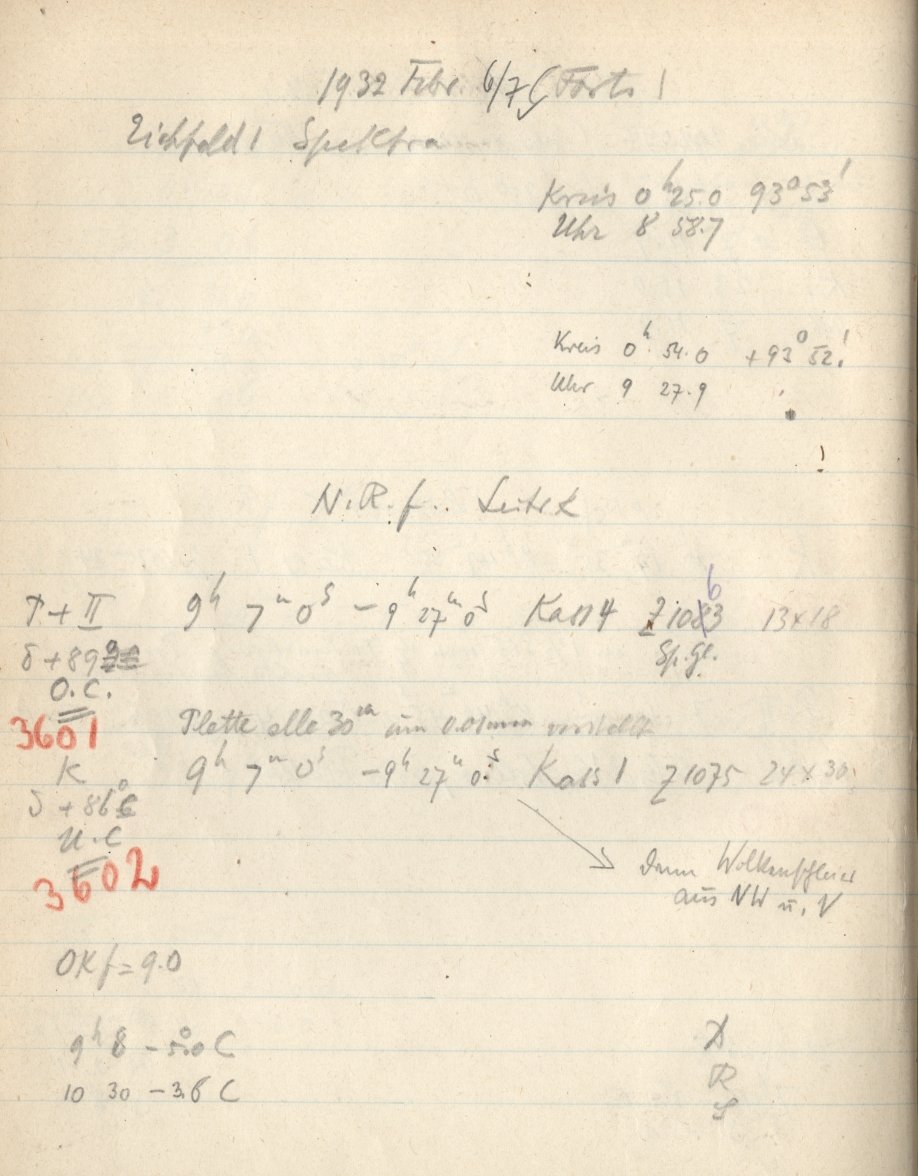 1932 Febr. 6/7 (Forts)
Eichfeld 1 Spektra
Kreis 0ʰ 25.0 93° 53'
Uhr 8 58.7
Kreis 0ʰ 54.0 +93° 52'
Uhr 9 27.9
N.R.f.
T + II 9ʰ 7ᵐ 0ˢ - 9ʰ 27ᵐ 0ˢ Kass 4 Z 1083 6 13x18
δ +89 Sp.Gl.
O.C.
3601 Platte alle 30ᵐ um 0.01mm verstellt
K 9ʰ 7ᵐ 0ˢ - 9ʰ 27ᵐ 0ˢ Kass 1 Z 1075 24 x 30
δ +86°
U.C
3602 dann Wolkenschleier
aus NW u. N
OKf = 9.0
9ʰ 8 - 5.0 C
10 30 - 3.8 C
R